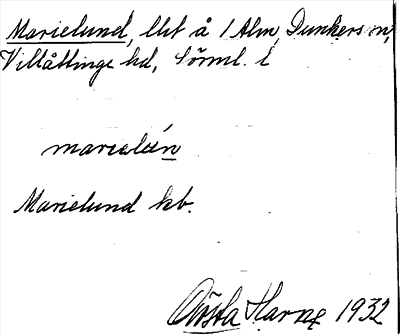 Marielund, lht å 1 Alm, Dunkers sn,
Villåttinge hd, Sörml. l
marielún
Marielund kb.
Gösta Harne 1932